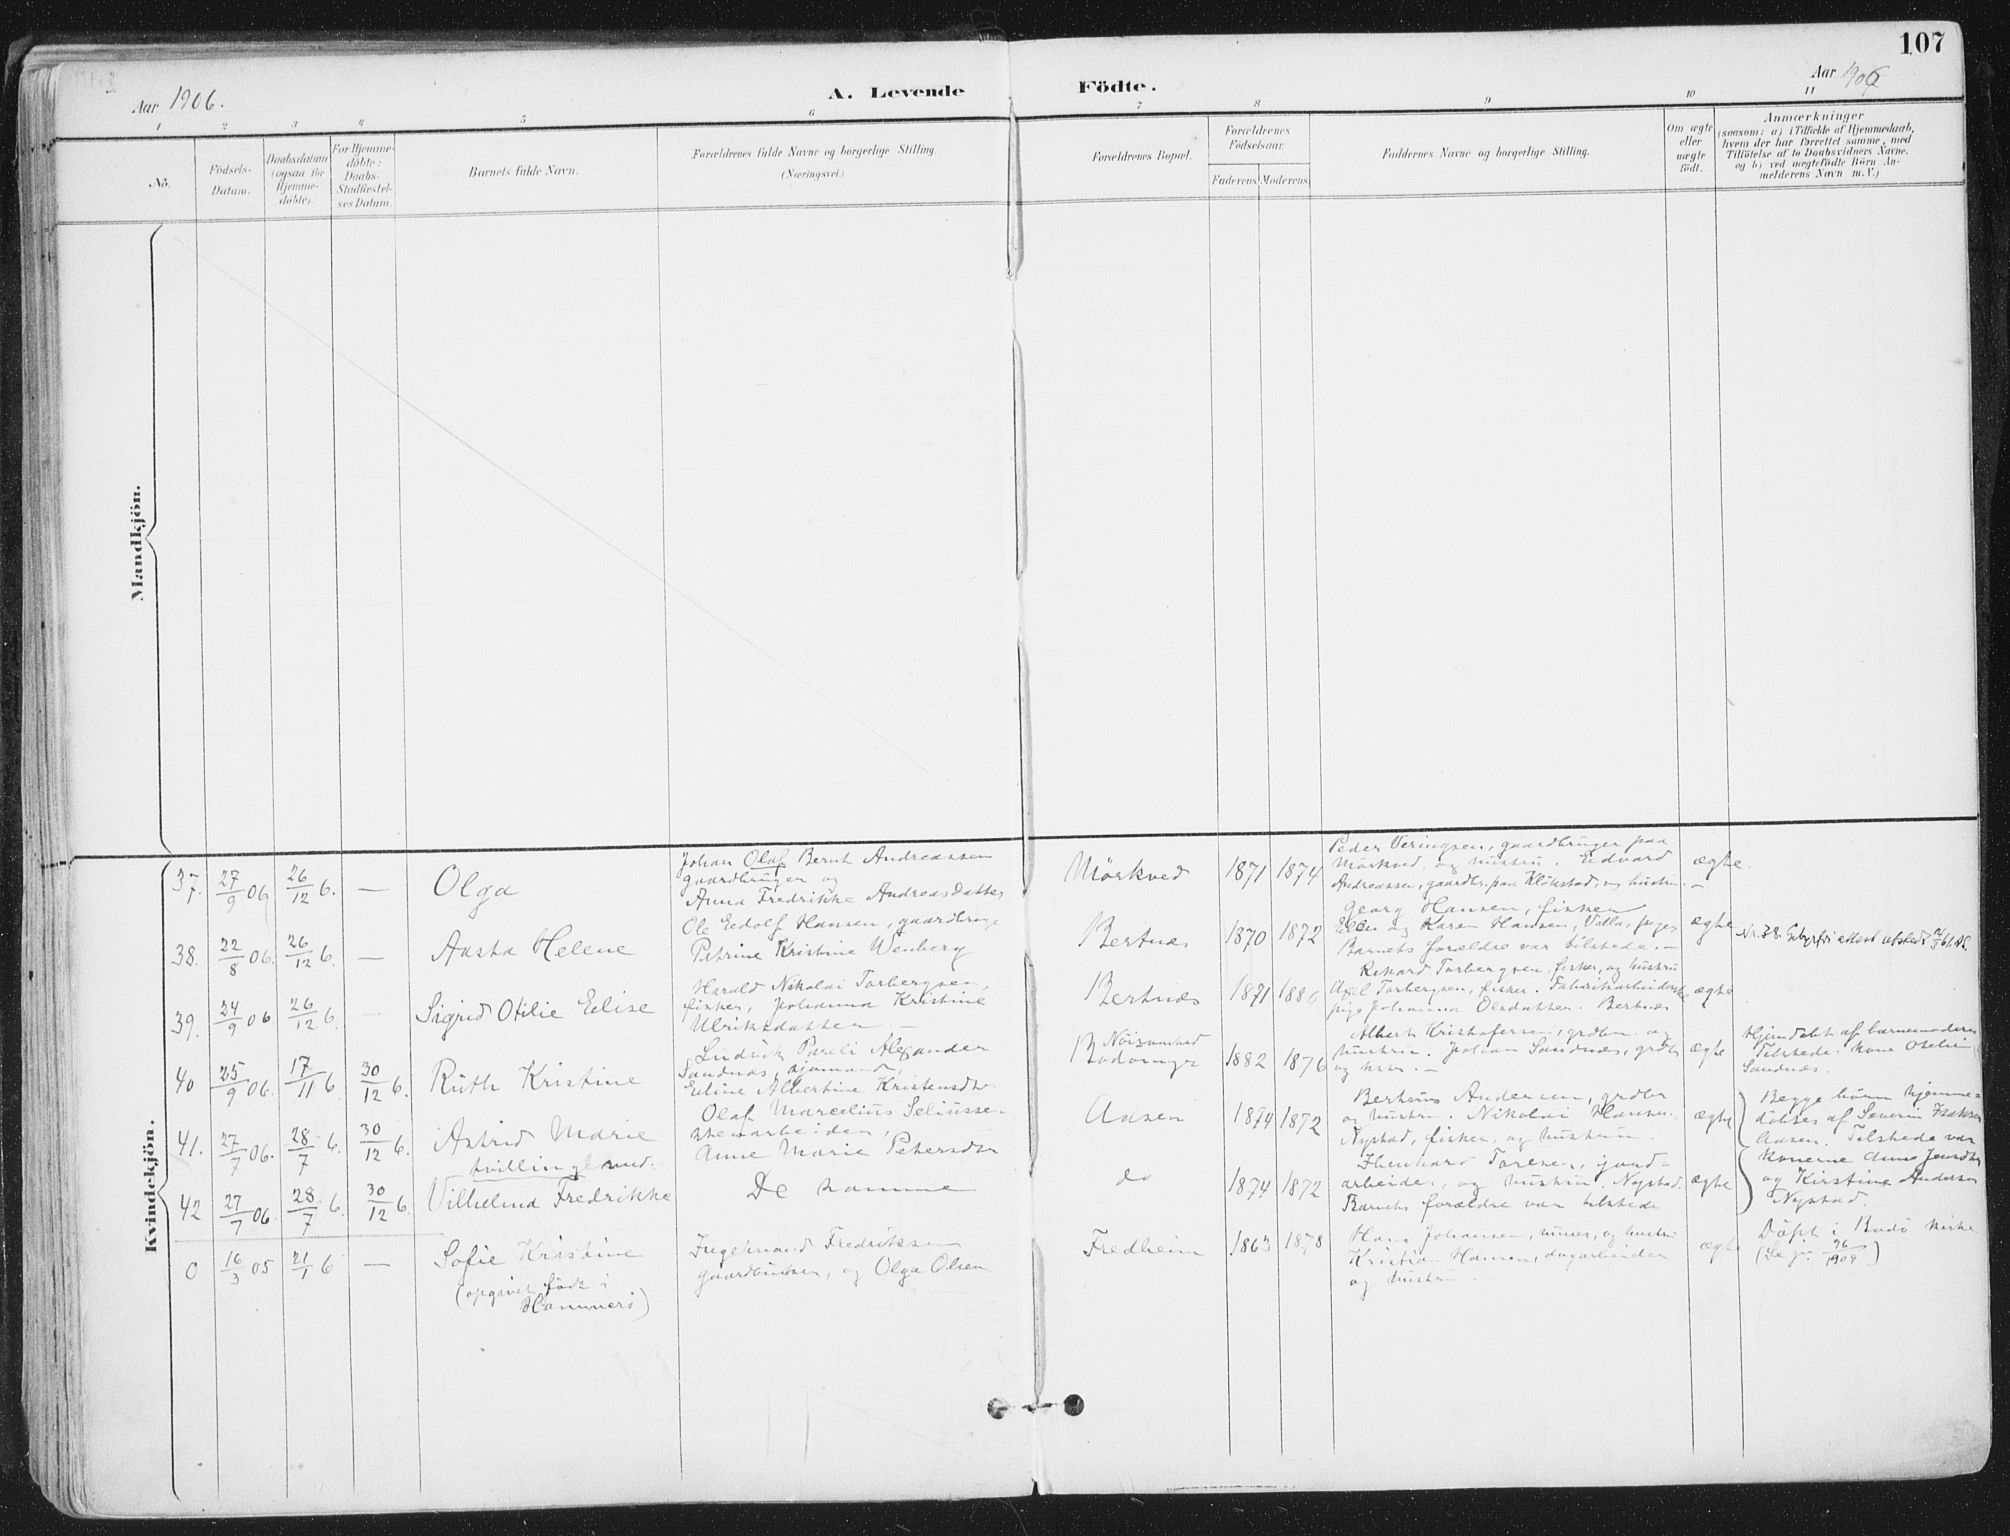 107
Aar 1906.
A. Levende Födte.
Aar 1906
1 2 3 4 5 6 7 8 9 10 11
No.
Födsels-
Datum.
Daabsdatum
(ogsaa for
Hjemme-
döbte).
For Hjemme-
döbte:
Daabs-
Stadfæstel-
ses Datum.
Barnets fulde Navn.
Forældrenes fulde Navne og borgerlige Stilling.
(Næringsvei.)
Forældrenes Bopæl.
Forældrenes
Födselsaar.
Faderens Moderens
Faddernes Navne og borgerlige Stilling.
Om ægte
eller
uægte
födt.
Anmærkninger
(saasom: a) i Tilfælde af Hjemmedaab,
hvem der har forrettet samme, med
Tilföielse af to Daabsvidners Navne,
og b) ved uægtefödte Börn An-
melderens Navn m. V.)
Mandkjön.
Kvindekjön.
37. 27/9 06 26/12 6. — Olga
Johan Olaf Bernt Andreassen
gaardbruger og
Anna Fredrikke Andreasdatter
Mørkved 1871 1874
Peder Veringsen, gaardbruger paa
Mørkved, og hustru. Edvard
Andreassen, gaardbr. paa Kløkstad, og hustru. —
ægte.
38. 22/8 06. 26/12 6. — Aasta Helene
Ole Edolf Hansen, gaardbruger
Petrine Kristine Wenberg
Bertnes 1870 1872
Georg Hansen, fisker
Ellen og Karen Hansen, Valle, piger
Barnets forældre var tilstede. —
ægte
Nr. 38. attest utstedt
39. 24/9 06 26/12 6. — Sigrid Otilie Elise
Harald Nikolai Torbergsen,
fisker, Johanna Kristine
Ulriksdatter. —
Bertnes 1871 1880
Rikard Torbergsen, fisker, og hustru
Axel Torbergsen, fisker. Fabrikarbeiderske
pige Johanna Olsdatter. Bertnes
ægte
40 25/9 06. 17/11 6 30/12 6. Ruth Kristine
Ludvik Pareli Alexander
Sandnes, sjømand,
Eline Albertine Kristensdtr
1882 1876
Albert Kristofersen, grdbr. og
hustru. Johan Sandnes, grdbr
og hstr. —
ægte
Hjemdøbt af barnemoderen
Tilstede: kone
Sandnes.
41. 27/7 06. 28/7 6. 30/12 6. Astrid Marie
Olaf Marcelius Seliussen
stenarbeider,
Anne Marie Petersdtr
Aasen 1874 1872
Berteus Andersen, grdbr
og hustru. Nikolai Hansen
Nystad, fisker, og hustru.
ægte
Begge børn hjemme-
døbtes af Severin Isaksen
Aasen. Tilstede var
konerne Anna Jensdtr
og Kirstine Andersen
Nystad.
tvillingbarnd:
42 27/7 06. 28/7 6. 30/12 6. Vilhelma Fredrikke
De samme
do 1874 1872
Toresen, jord-
arbeider, og hustru. Nystad.
Barnets forældre var tilstede
ægte
0 16/3 05 21/1 6 — Sofie Kristine
(opgivet født i
Hammerø)
Ingebrand Fredriksen
gaardbruker, og Olga Olsen
Fredheim 1863 1878
Hans Johansen, og hustru
Kristian Hansen, dagarbeider
og hustru —
ægte
Døpt i Bodø kirke